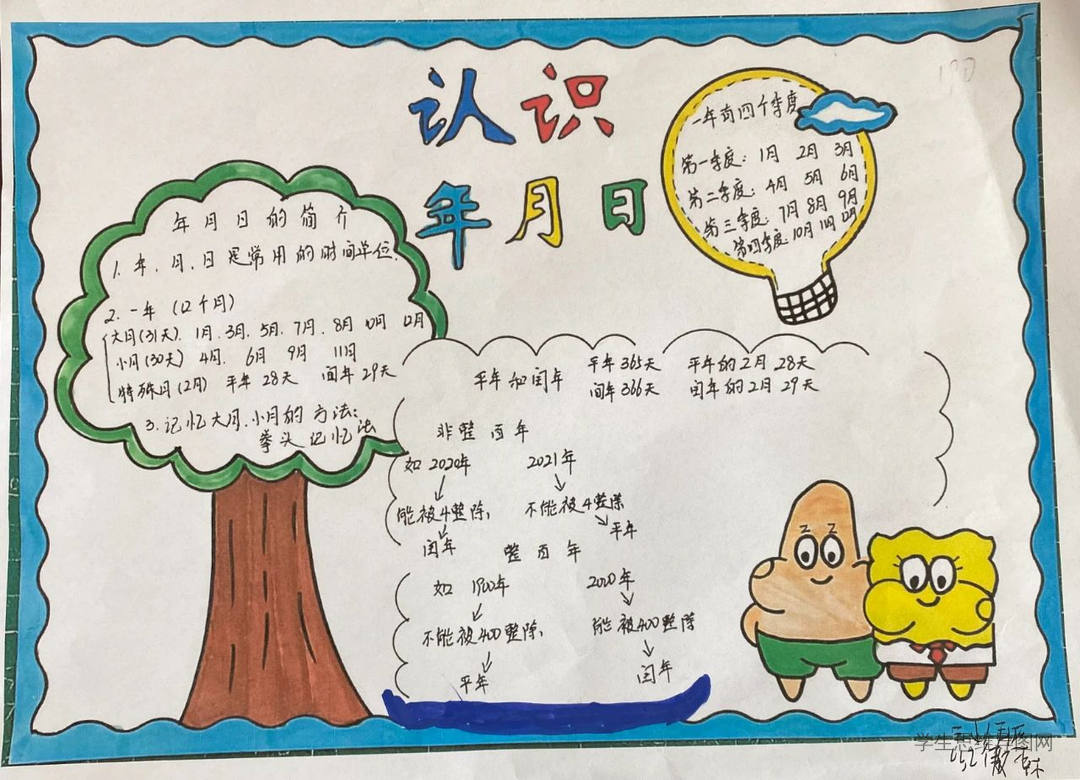 认识
年月日
一年有四个季度
第一季度：1月 2月 3月
第二季度：4月 5月 6月
第三季度：7月 8月 9月
第四季度：10月 11月 12月
年月日的简介
1. 年、月、日是常用的时间单位.
2. 一年（12个月）
大月(31天)、1月、3月、5月、7月、8月 10月 12月
小月(30天) 4月、6月 9月 11月
特殊月(2月) 平年 28天 闰年 29天
3.记忆大月、小月的方法：
拳头记忆法
平年和闰年
平年 365天 平年的2月 28天
闰年 366天 闰年的2月 29天
非整百年
如 2020年 2021年
能被4整除， 不能被4整除
闰年 平年
整百年
如 1900年 2000年
不能被400整除， 能被400整除
平年 闰年